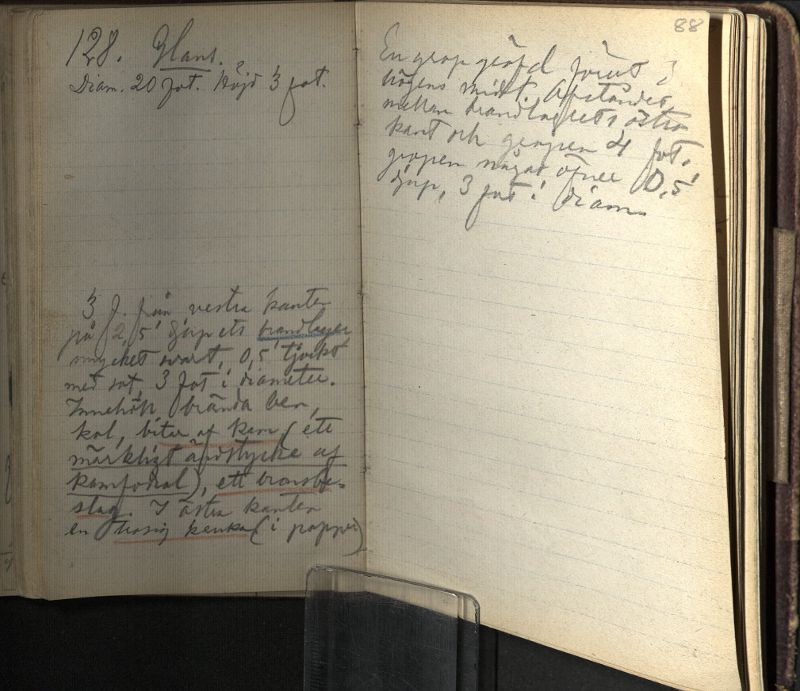 128. Hans.
Diam. 20 fot. Höjd 3 fot.
3 f. från vestra kanten
på 2,5' djup ets brandlager
mycket svart, 0,5' tjockt
med sot, 3 fot i diameter.
Innehöll brända ben,
kol, bitar af kam (ett
märkligt ändstycke af
kamfodral), ett bronsbe-
slag. I östra kanten
en trasig kruka (i papper)
88
En grop gräfd förut i
högens midt. Afståndet
mellan brandlagrets östra
kant och gropen 4 fot.
gropen något öfver 0,5'
djup, 3 fot i diam.